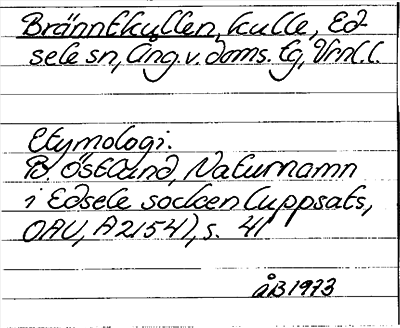 Bränntkullen, kulle, Ed-
sele sn, Ång. v. doms. tg, Vrnl. l.
Etymologi.
B. Östlund, Naturnamn
i Edsele socken (uppsats,
OAU, A2154), s. 41
åB 1973